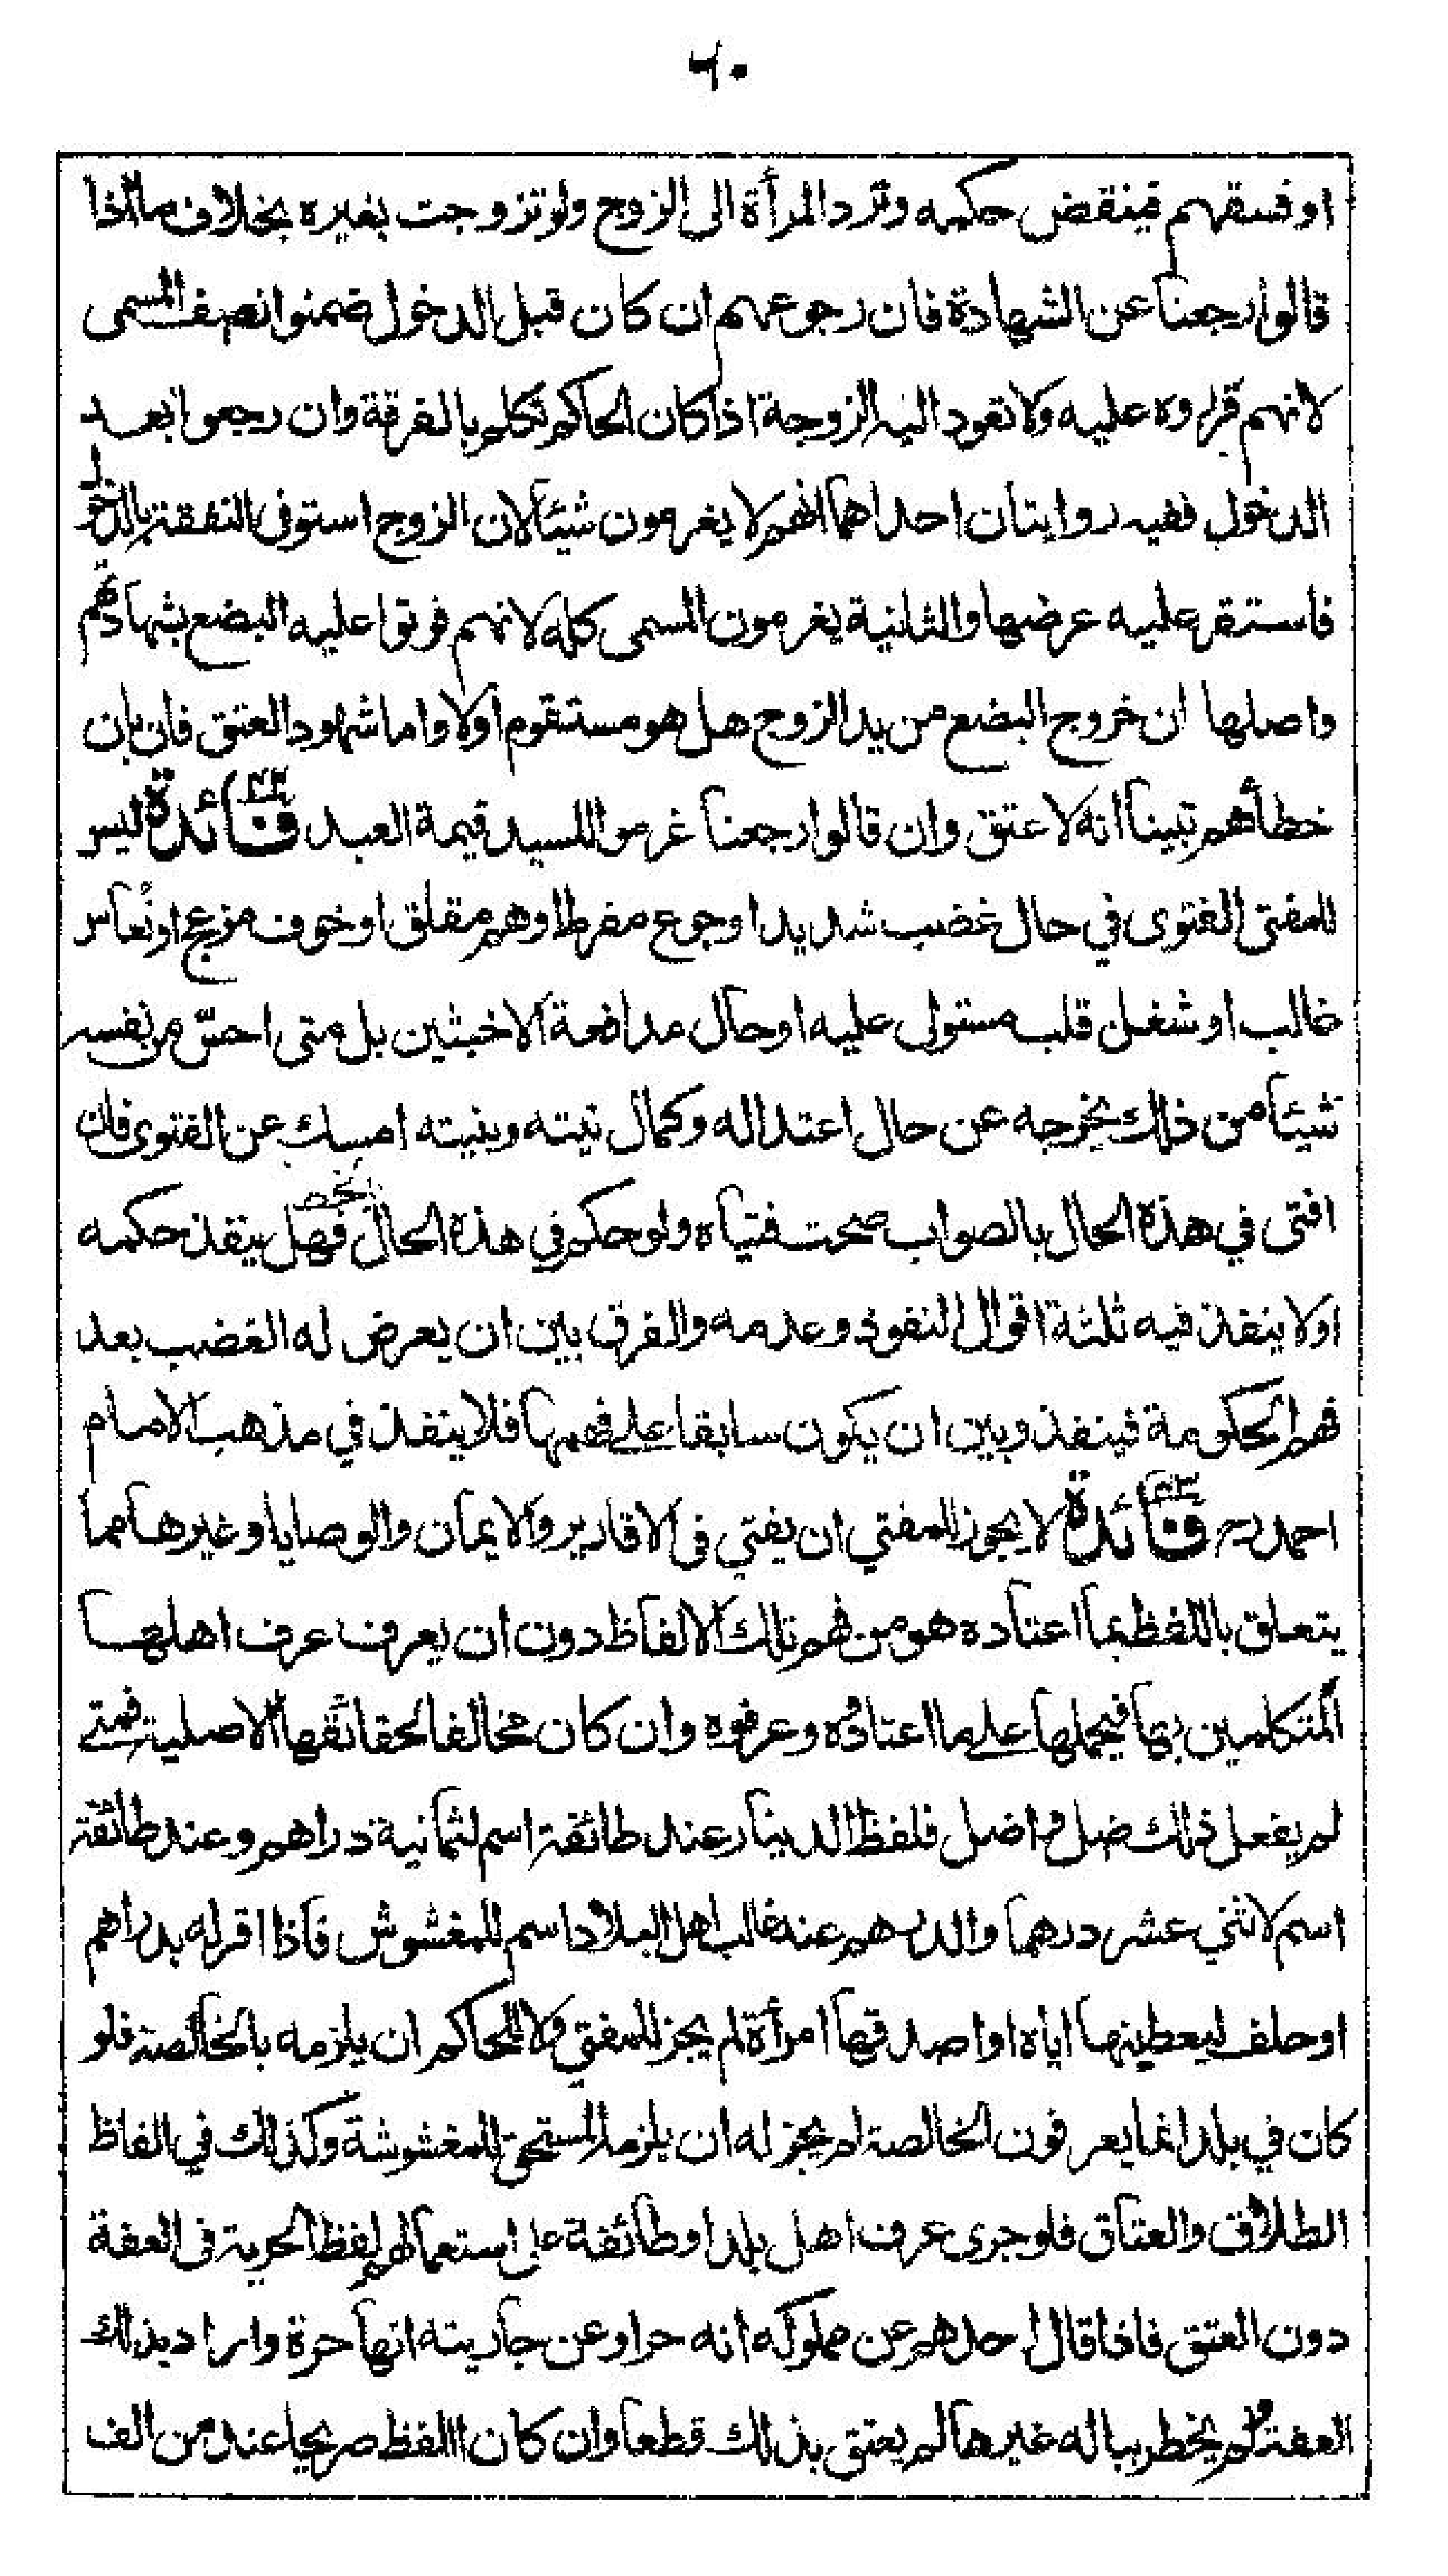 ٦٠
او فسقهم فينقض حكمه وترد المرأة الى الزوج ولو تزوجت بغيره بخلاف ما اذا
قالوا رجعنا عن الشهادة فان رجوعهم ان كان قبل الدخول ضمنوا نصف المسمى
لانهم قرروه عليه ولا تعود اليه الزوجة اذا كان الحاكم تكلم بالفرقة وان رجعوا بعد
الدخول ففيه روايتان احداهما انهم لا يغرمون شيئا لان الزوج استوفى النفقة بالدخول
فاستقر عليه عرضها والثانية يغرمون المسمى كله لانهم فوتوا عليه البضع بشهادتهم
واصلها ان خروج البضع من يد الزوج هل هو مستقوم اولا واما شهود العتق فان بان
خطأهم تبينا انه لا عتق وان قالوا رجعنا غرموا للسيد قيمة العبد فائدة ليس
للمفتى الفتوى في حال غضب شديد او جوع مفرط او هم مقلق او خوف مزعج او نعاس
غالب او شغل قلب مستولى عليه او حال مدافعة الاخبثين بل متى احسّ من نفسه
شيئا من ذلك يخرجه عن حال اعتداله وكمال نيته وبنيته امسك عن الفتوى فان
افتى في هذه الحال بالصواب صحت فتياه ولو حكم في هذه الحال فهل ينفذ حكمه
اولا ينفذ فيه ثلثة اقوال النفوذ وعدمه والفرق بين ان يعرض له الغضب بعد
فهم الحكومة فينفذ وبين ان يكون سابقا على فهمها فلا ينفذ في مذهب الامام
احمد رح فائدة لا يجوز للمفتي ان يفتي فى الاقارير والايمان والوصايا وغيرها مما
يتعلق باللفظ بما اعتاده هو من فهم تلك الالفاظ دون ان يعرف عرف اهلها
المتكلمين بها فيحملها على ما اعتادوه وعرفوه وان كان مخالفا لحقائقها الاصلية فمتى
لم يفعل ذلك ضل واضل فلفظ الدينار عند طائفة اسم لثمانية دراهم وعند طائفة
اسم لاثني عشر درهما والدرهم عند غالب اهل البلاد اسم للمغشوش فاذا اقر له بدراهم
او حلف ليعطينها اياه او اصدقها امرأة لم يجز للمفتي ولا للحاكم ان يلزمه بالخالصة فلو
كان في بلد انما يعرفون الخالصة لم يجز له ان يلزم المستحق للمغشوشة وكذلك في الفاظ
الطلاق والعتاق فلو جرى عرف اهل بلد او طائفة على استعمالهم لفظ الحرية فى العفة
دون العتق فاذا قال احدهم عن مملوكه انه حر او عن جاريته انها حرة واراد بذلك
العفة لم يخطر بباله غيرها لم يعتق بذلك قطعا وان كان اللفظ صريحا عند من الف